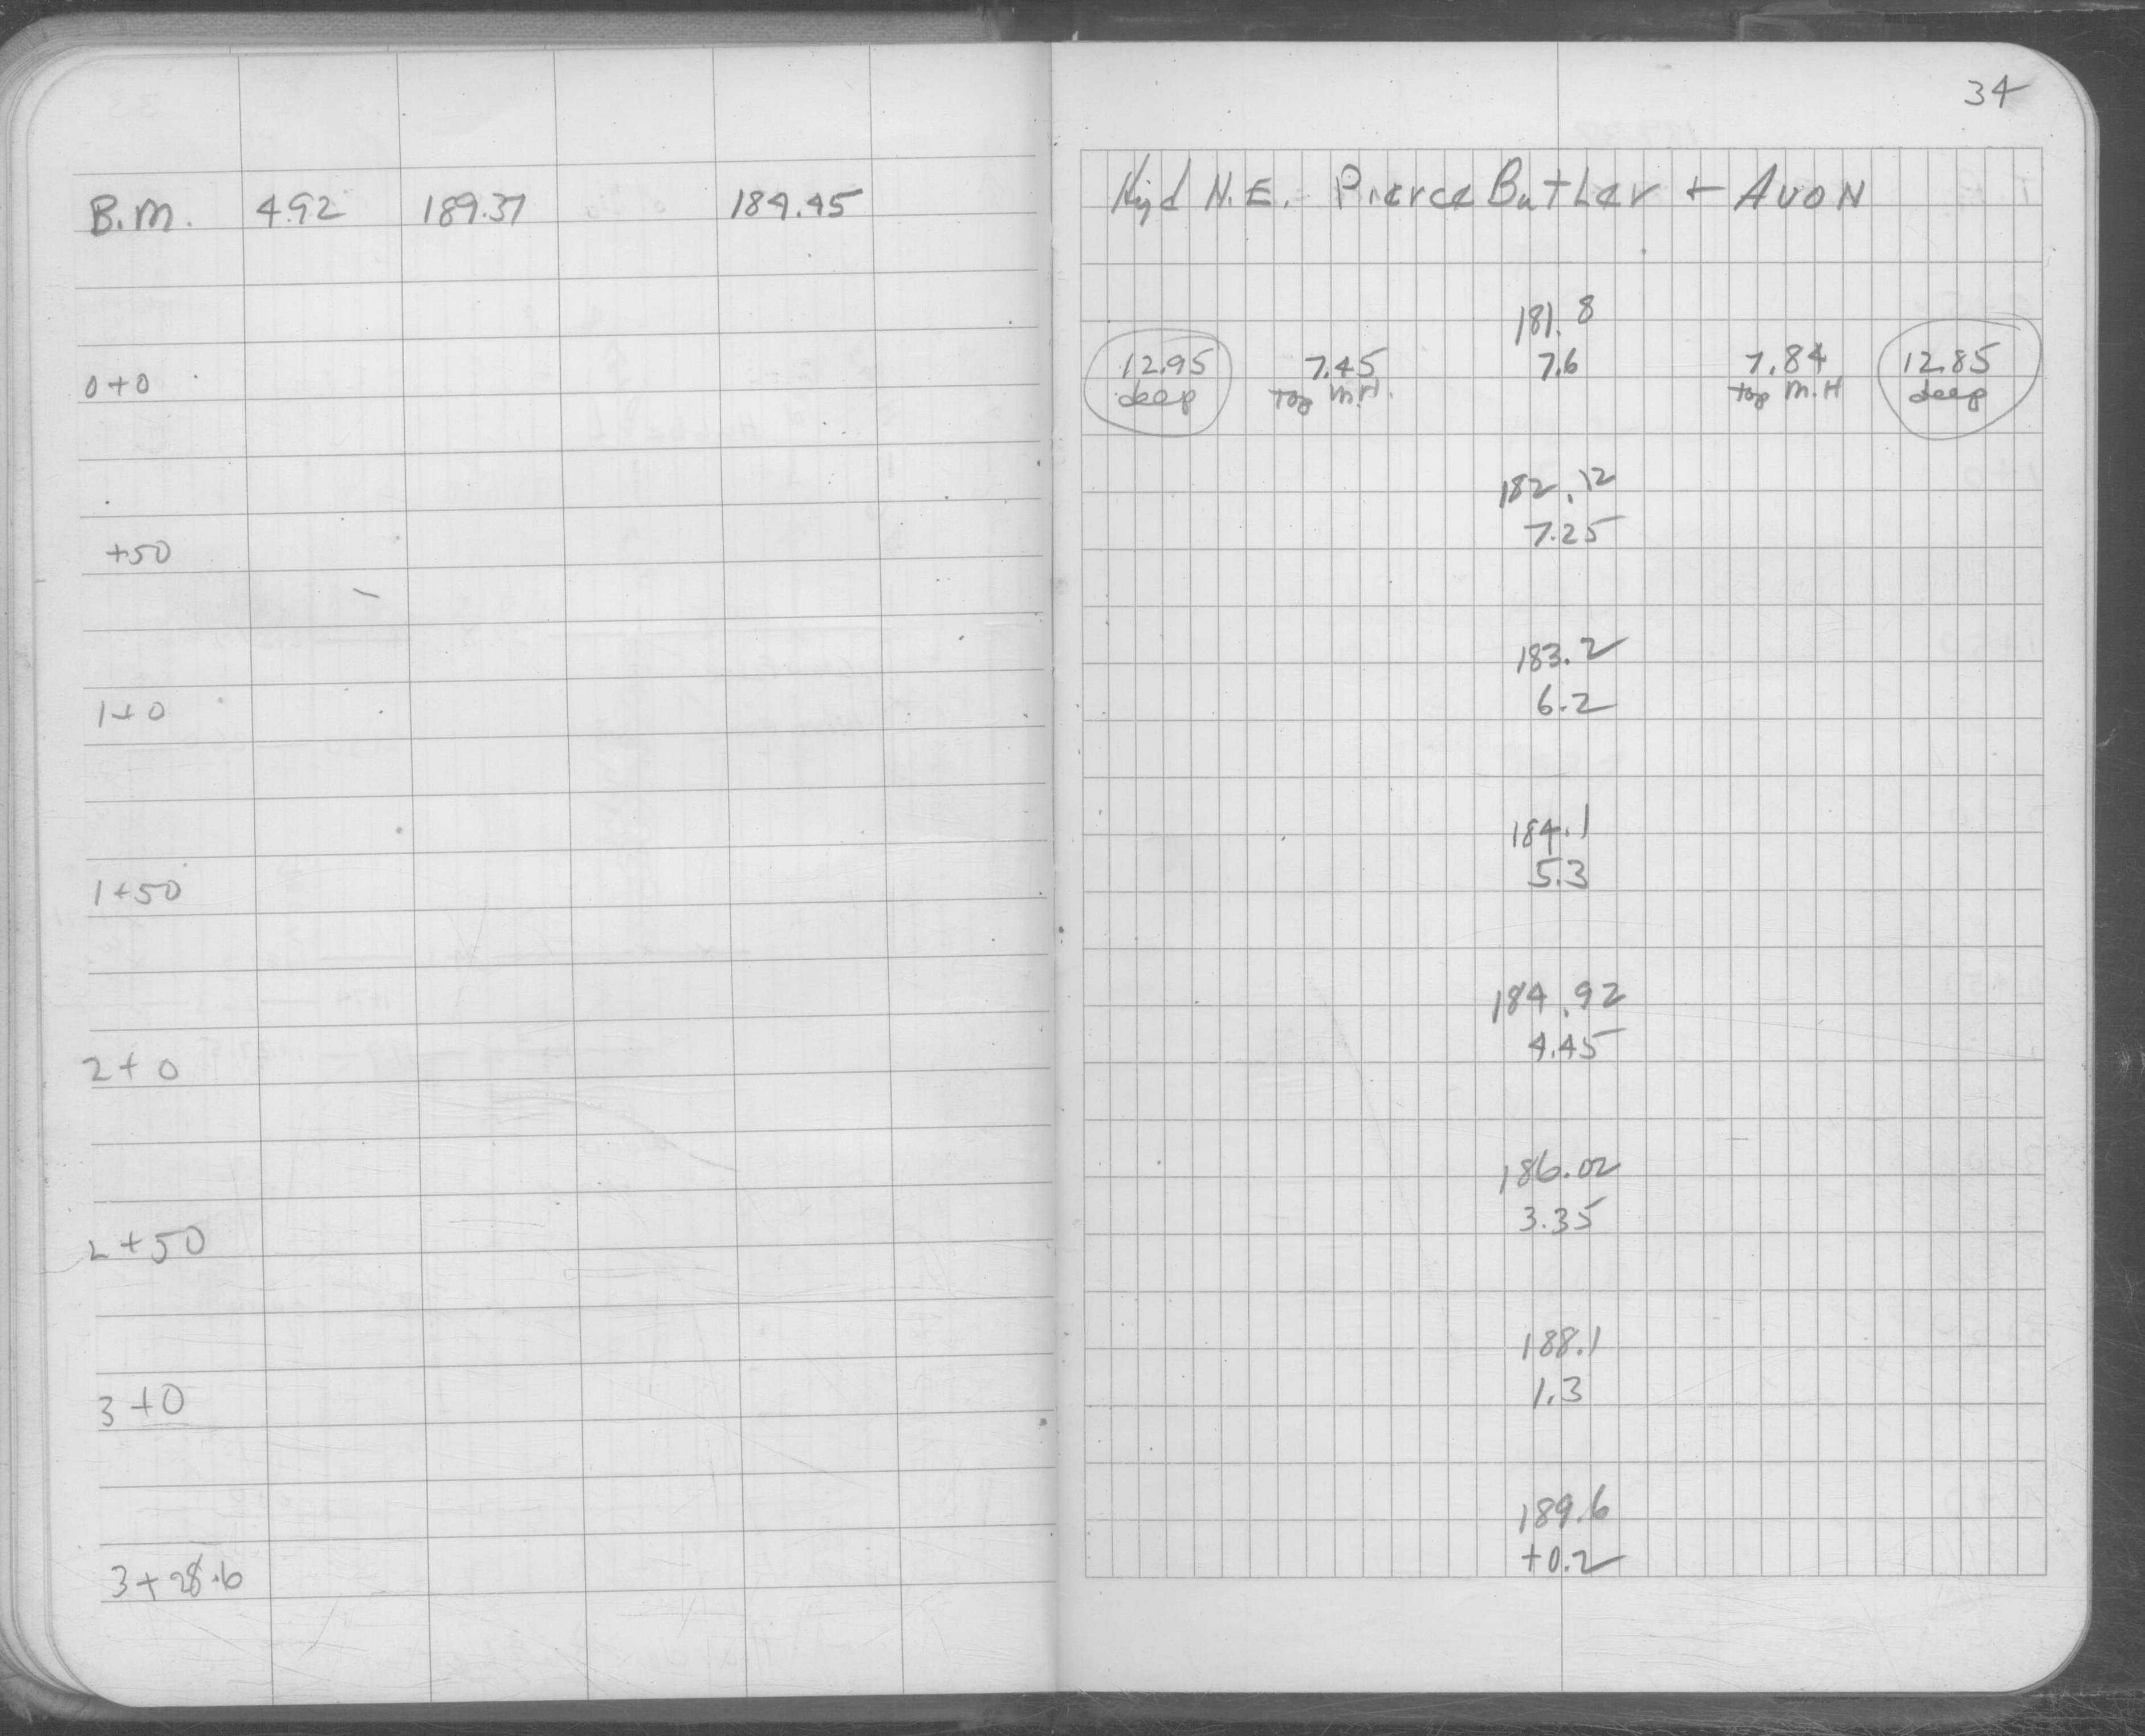 34
B.M. 4.92 189.37 184.45
Hyd N.E. Pierce Butler + Avon
181.8
0+0 12.95 7.45 7.6 7.84 12.85
deep top M.H. top M.H deep
182.12
+50 7.25
183.2
1+0 6.2
184.1
1+50 5.3
184.92
2+0 4.45
186.02
2+50 3.35
188.1
3+0 1.3
189.6
3+28.6 +0.2